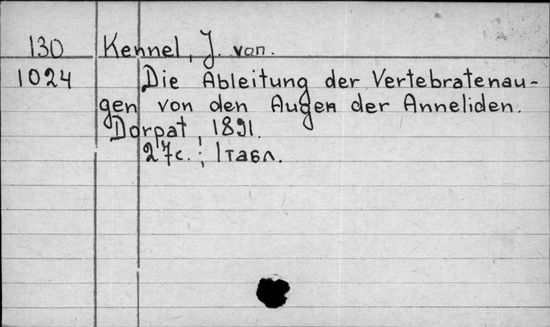 130 Kennel, J. von.
1024 Die Ableitung der Vertebratenau-
gen von den Augen der Anneliden.
Dorpat, 1891.
27с.; 1табл.